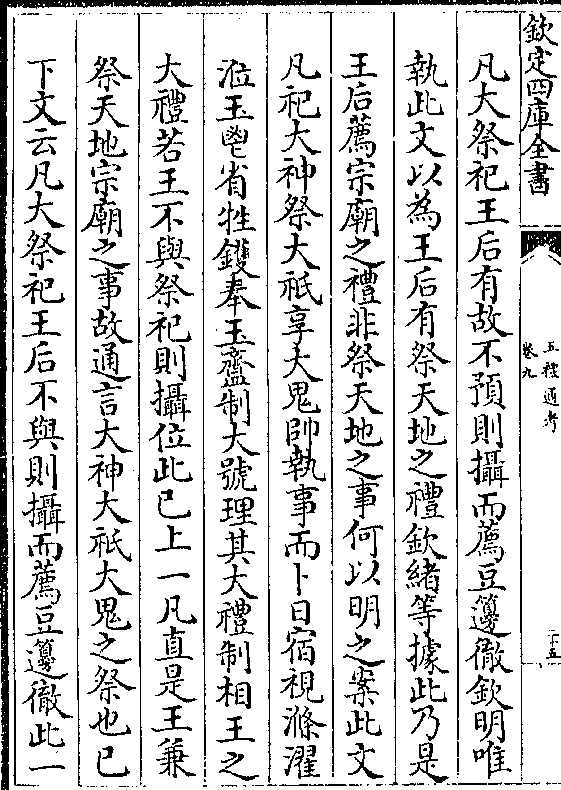 欽定四庫全書
五禮通考
卷九
二十五
凡大祭祀王后有故不預則攝而薦豆籩徹欽明唯
執此文以為王后有祭天地之禮欽緒等據此乃是
王后薦宗廟之禮非祭天地之事何以明之案此文
凡祀大神祭大祇享大鬼帥執事而卜日宿視滌濯
涖玉鬯省牲鑊奉玉齍制大號理其大禮制相王之
大禮若王不與祭祀則攝位此已上一凡直是王兼
祭天地宗廟之事故通言大神大祇大鬼之祭也已
下文云凡大祭祀王后不與則攝而薦豆籩徹此一